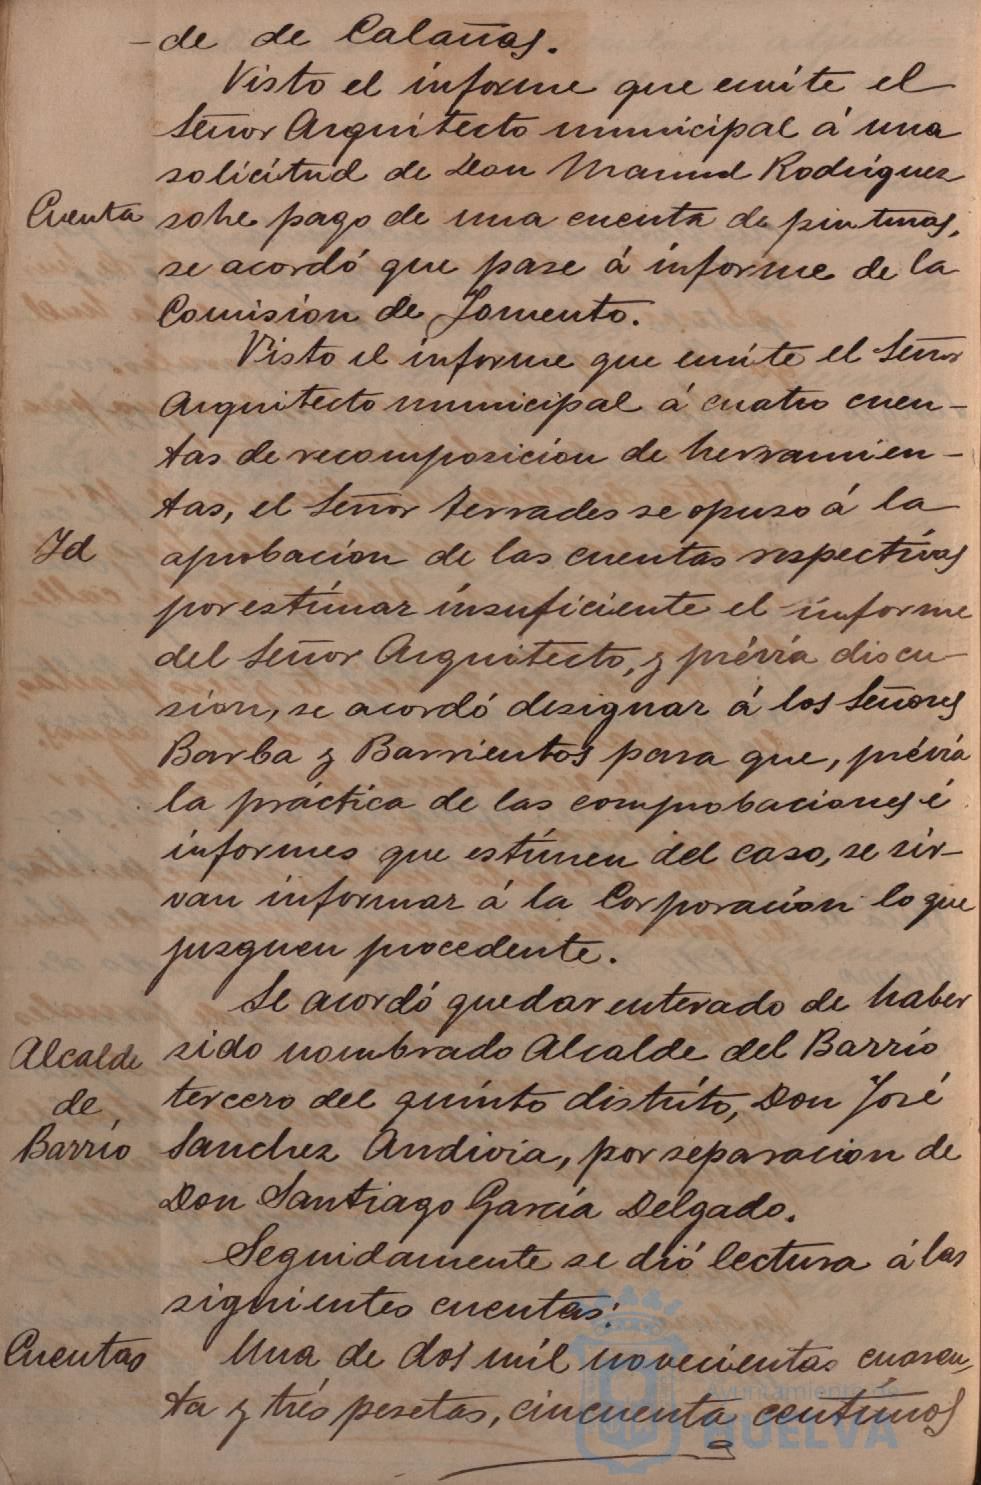 -de de Calañas.
Visto el informe que emite el
Señor Arquitecto municipal á una
solicitud de Don Manuel Rodriguez
Cuenta
sobre pago de una cuenta de pinturas,
se acordó que pase á informe de la
Comision de Fomento.
Visto el informe que emite el Señor
Arquitecto municipal á cuatro cuen-
tas de recomposicion de herramien-
tas, el Señor Terrades se opuso á la
Id
aprobacion de las cuentas respectivas
por estimar insuficiente el informe
del Señor Arquitecto, y prévia discu-
sion, se acordó designar á los Señores
Barba y Barrientos para que, prévia
la práctica de las comprobaciones é
informes que estimen del caso, se sir-
van informar á la Corporacion lo que
juzguen procedente.
Se acordó quedar enterado de haber
Alcalde
de
Barrio
sido nombrado Alcalde del Barrio
tercero del quinto distrito, Don José
Sanchez Andivia, por separacion de
Don Santiago García Delgado.
Seguidamente se dió lectura á las
siguientes cuentas:
Cuentas
Una de dos mil novecientas cuaren-
ta y trés pesetas, cincuenta centimos
Ayuntamiento de
HUELVA